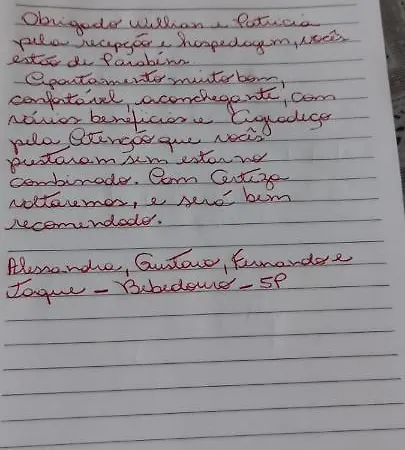 Obrigado Willian e Patricia
pela recepção e hospedagem, vocês
estão de Parabéns.
Apartamento muito bom,
confortável, aconchegante, com
vários benefícios e Agradeço
pela Atenção que vocês
prestaram sem estar no
combinado. Com Certeza
voltaremos, e será bem
recomendado.
Alessandra, Gustavo, Fernando e
Jaque - Bebedouro - SP